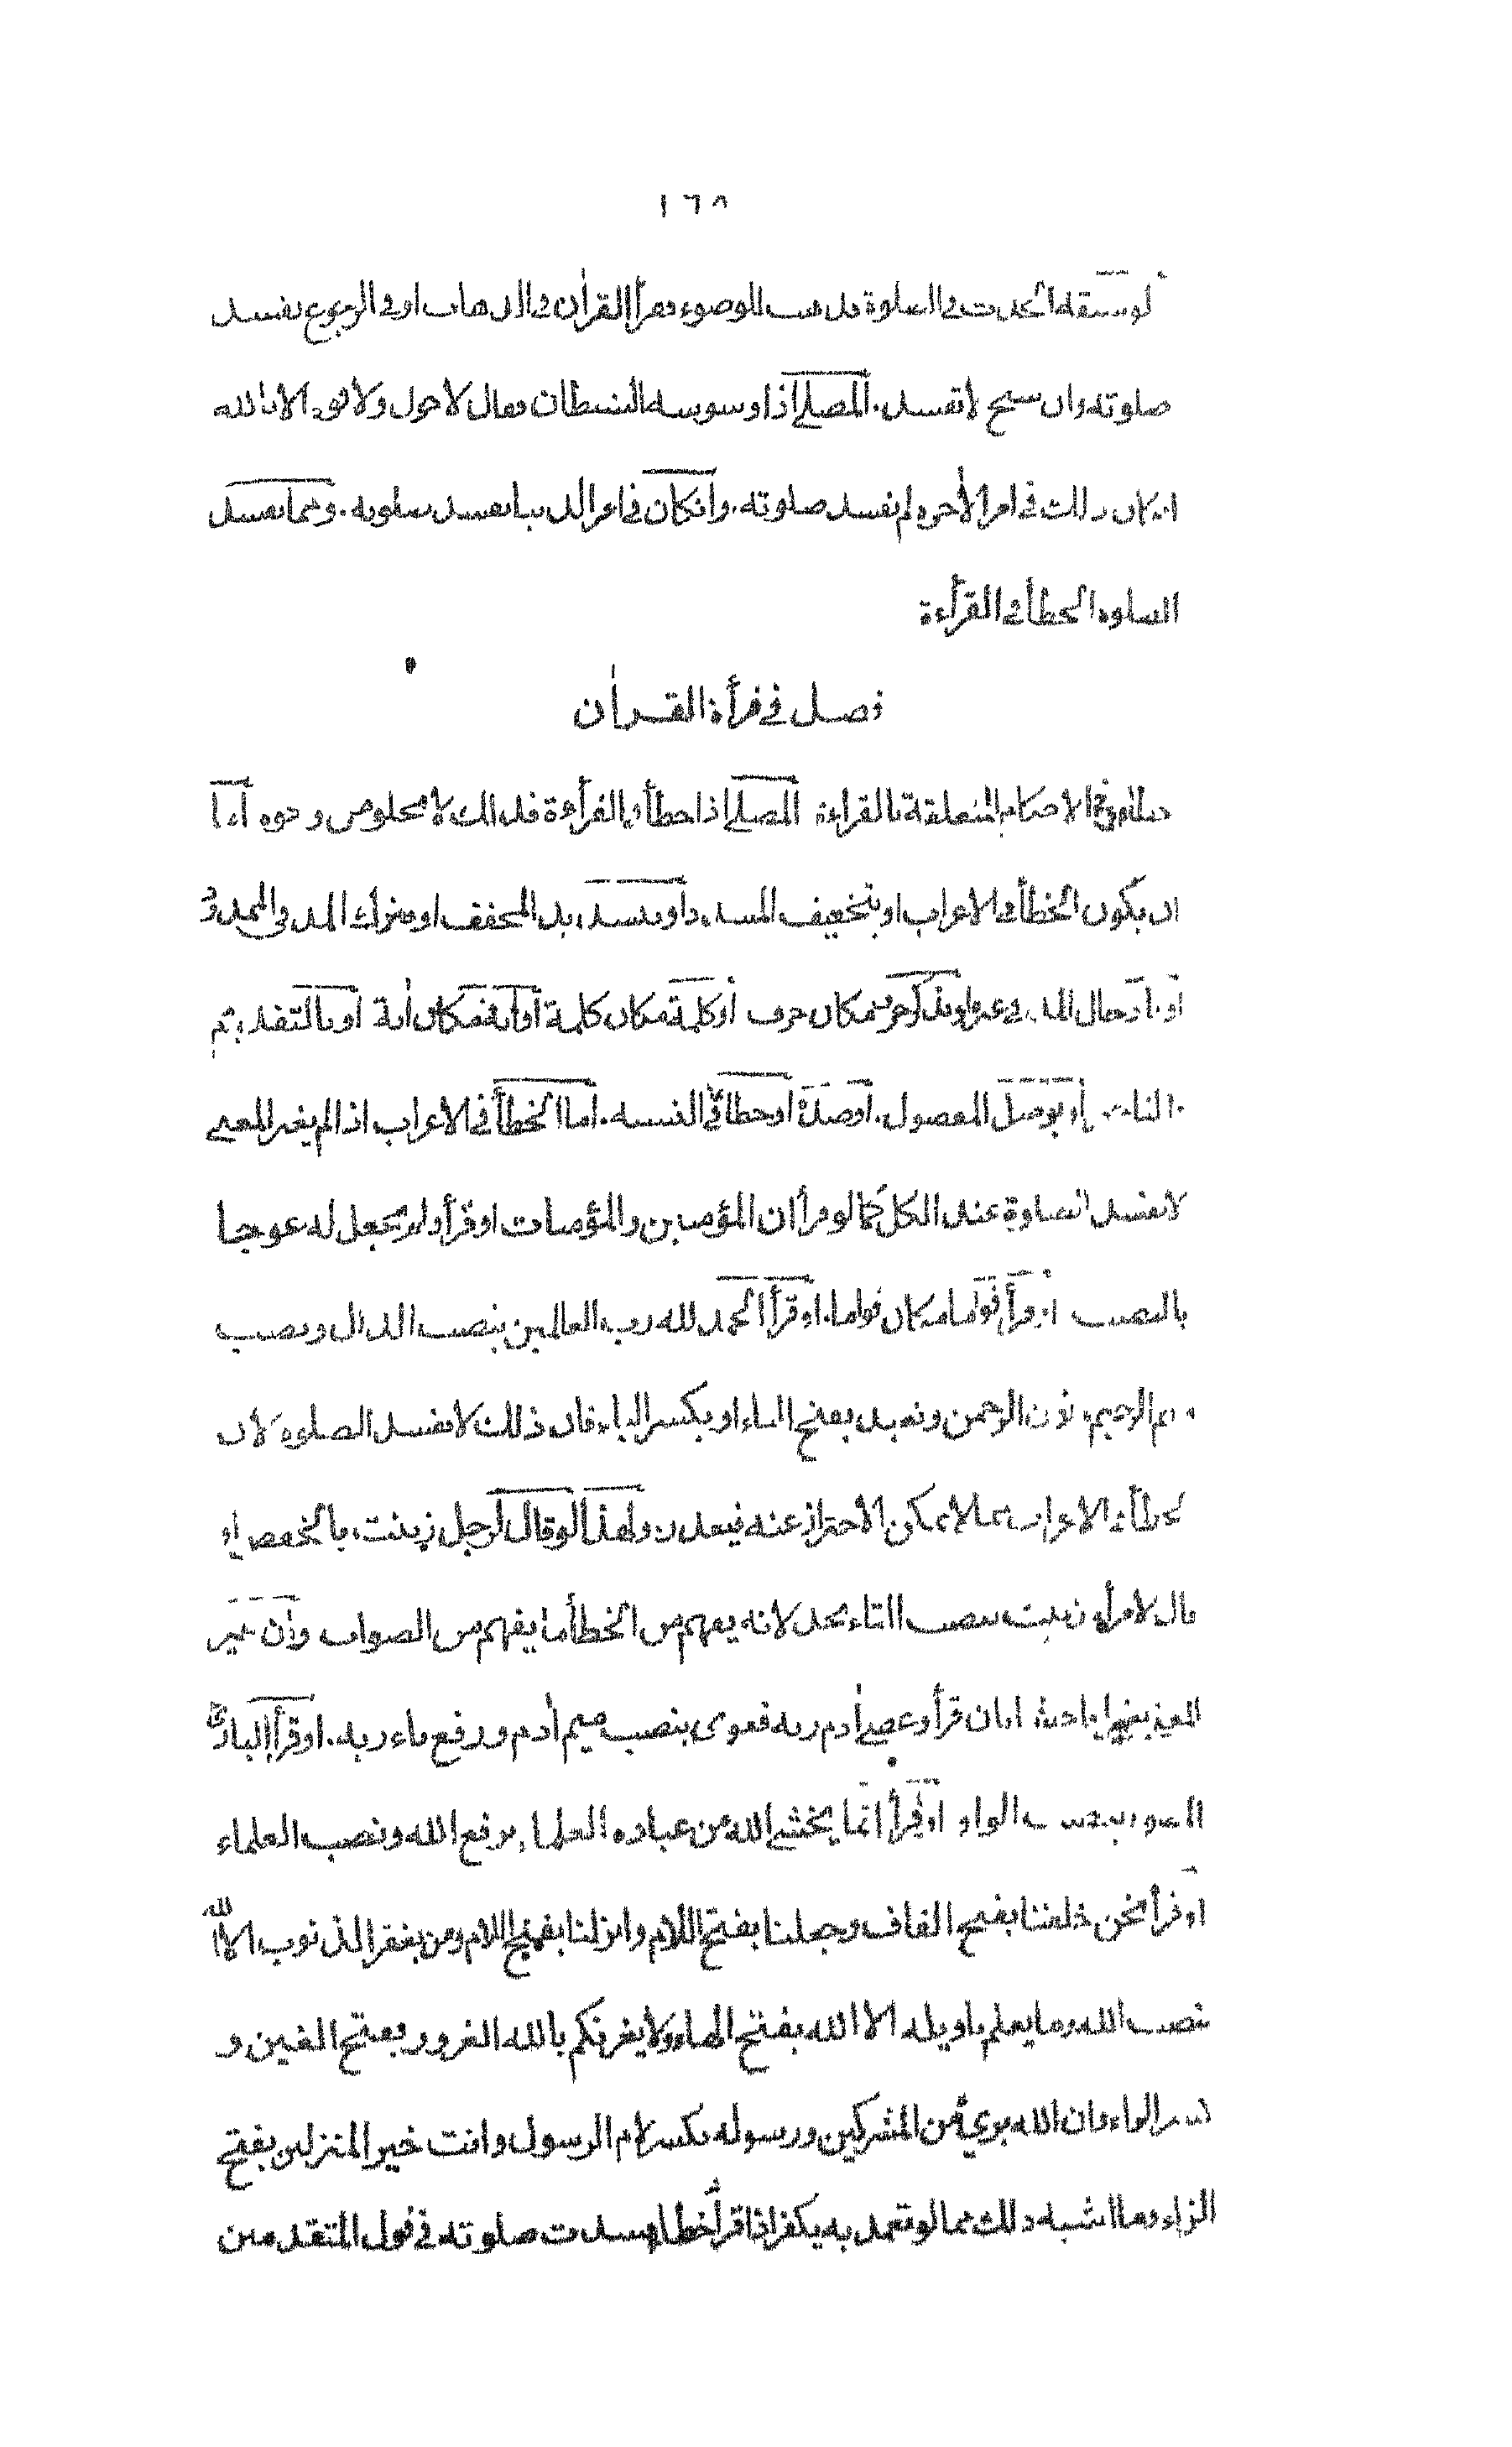 ١٦٨
لو سبقه الحدث في الصلوة فذهب للوضوء فقرأ القرآن في الذهاب او في الرجوع تفسد
صلوته وان سبح لا تفسد . المصلي اذا وسوسه الشيطان فقال لا حول ولا قوة الا بالله
ان كان ذلك في امر الأخرة لم تفسد صلوته . وان كان في امر الدنيا تفسد صلوته . ومما تفسد
الصلوة الخطأ في القرأءة
فصل في قرأة القرأن
الخطأ وفي الاحكام المتعلقة بالقراءة المصلي اذا اخطأ في القرأءة فذلك لا يخلو من وجوه اما
ان يكون الخطأ في الاعراب او بتخفيف المشدد او بتشديد المخفف او بترك المد في الممدود
او بادخال المد في غيره او بذكر حرف مكان حرف او كلمة مكان كلمة او آية مكان أية او بالتقديم
والتأخير او بوصل المفصول . او فصل او خطأ في النسبه . اما الخطأ في الاعراب اذا لم يغير المعنى
لا تفسد الصلوة عند الكل كما لو قرأ ان المؤمنين والمؤمنات او قرأ ولم يجعل له عوجا
بالنصب او قرأ قواما مكان قواما . او قرأ الحمد لله رب العالمين بنصب الدال ونصب
ميم الرحيم ونون الرحمن ونعبد بفتح الباء او بكسر الباء فان ذلك لا تفسد الصلوة لان
الخطأ في الاعراب مما لا يمكن الأحتراز عنه فيعذر ولهذا لو قال لرجل زينت بالخفض او
قال لامرأة زنيت بنصب التاء يحد لانه يفهم من الخطأ ما يفهم من الصواب وان غير
المعنى تغييرا فاحشا بان قرأ وعصى أدم ربه فغوى بنصب ميم أدم ورفع باء ربه . او قرأ البارئ
المصور بنصب الواو او قرأ انما يخشى الله من عباده العلماء برفع الله ونصب العلماء
او قرأ نحن خلقنا بفتح القاف وجعلنا بفتح اللام وانزلنا بفتح اللام ومن يغفر الذنوب الا الله
بنصب الله وما يعلم تاويله الا الله بفتح الهاء ولا يغرنكم بالله الغرور بفتح الغين و
كسر الراء وان الله بريء من المشركين ورسوله بكسر لام الرسول وانت خير المنزلين بفتح
الزاء وما اشبه ذلك مما لو تعمد به يكفر اذا قرأ خطأ فسدت صلوته في قول المتقدمين